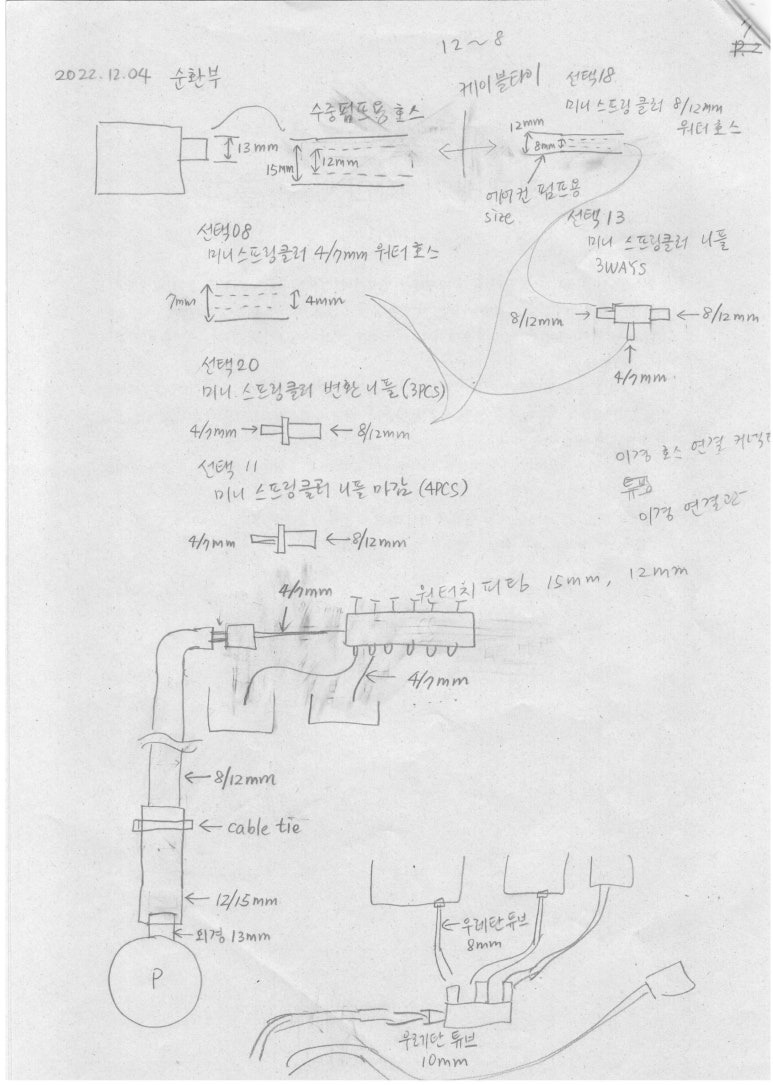 7
12~8
2022.12.04 순환부
케이블타이
선택18
미니스프링클러 8/12mm
워터호스
수중펌프용호스
13mm
15mm
12mm
12mm
8mm
에어컨 펌프용
size
선택13
미니 스프링클러 니플
3WAYS
8/12mm
8/12mm
4/7mm
선택08
미니스프링클러 4/7mm 워터호스
7mm
4mm
선택20
미니 스프링클러 변환니플 (3PCS)
4/7mm
8/12mm
선택 11
미니 스프링클러 니플 마감 (4PCS)
4/7mm
8/12mm
이경 호스 연결 커넥터
이경 연결관
4/7mm
원터치피팅 15mm, 12mm
4/7mm
8/12mm
cable tie
12/15mm
외경 13mm
P
우레탄튜브
8mm
우레탄 튜브
10mm